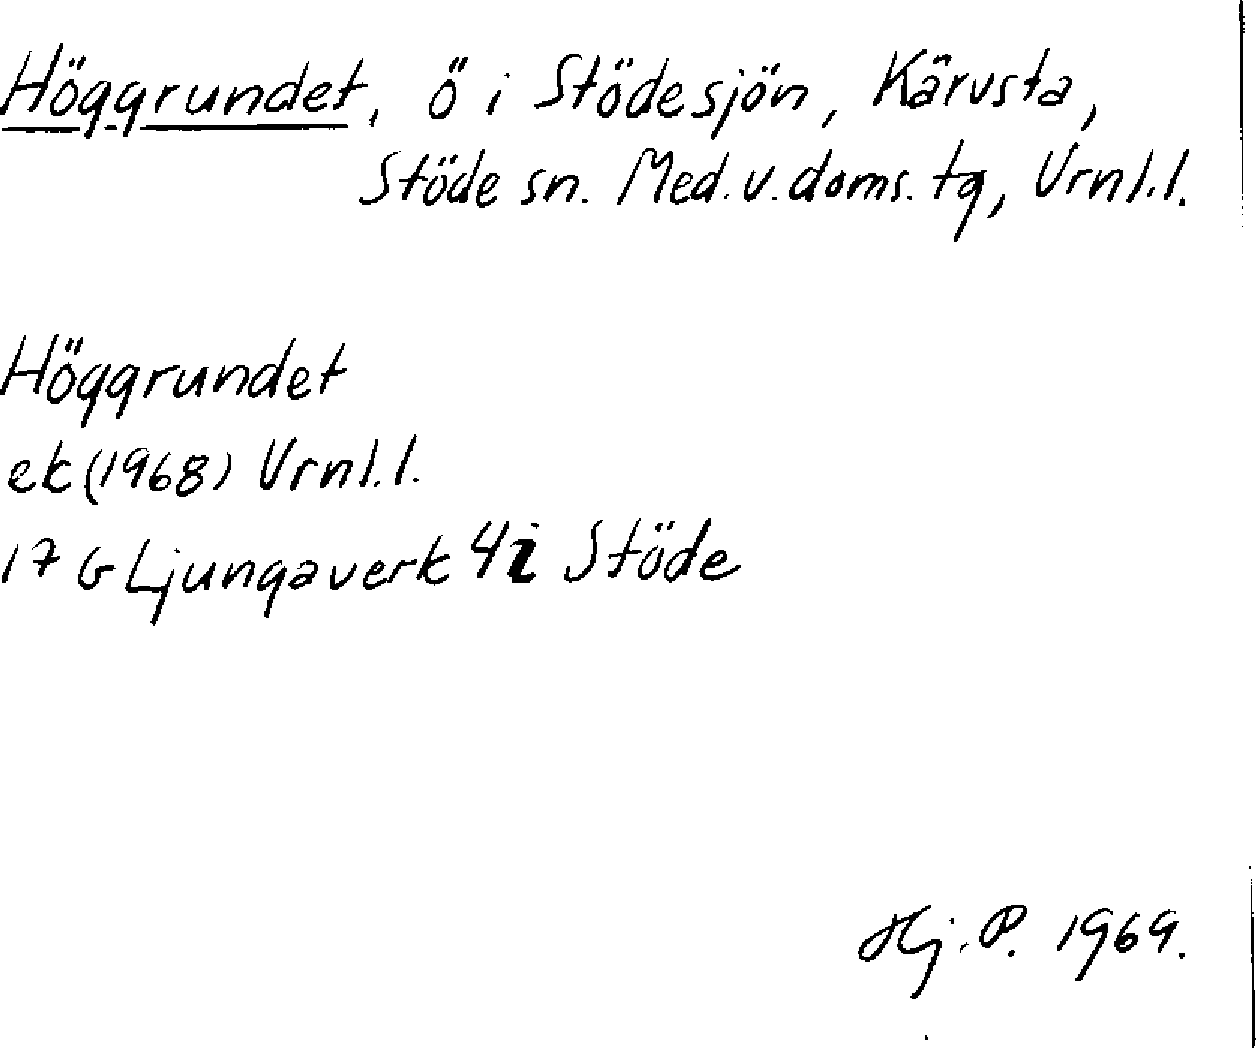 Höggrundet, ö i Stödesjön, Kärvsta,
Stöde sn. Med. v. doms. tg, Vrnl.l.
Höggrundet
ek (1968) Vrnl.l.
17 G Ljungaverk 4i Stöde
Hj. P. 1969.